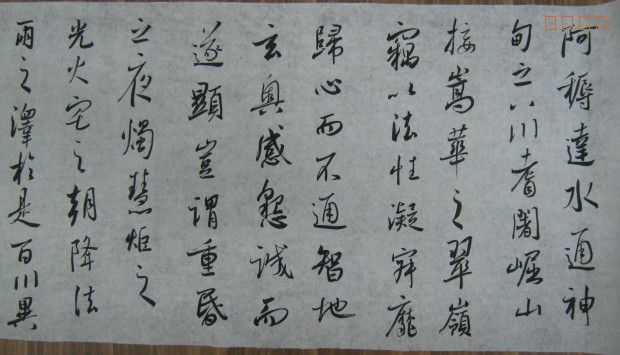 阿耨達水通神
甸之八川耆闍崛山
接嵩華之翠嶺
竊以法性凝寂靡
歸心而不通智地
玄奧感懇誠而
遂顯豈謂重昏
之夜燭慧炬之
光火宅之朝降法
雨之澤於是百川異